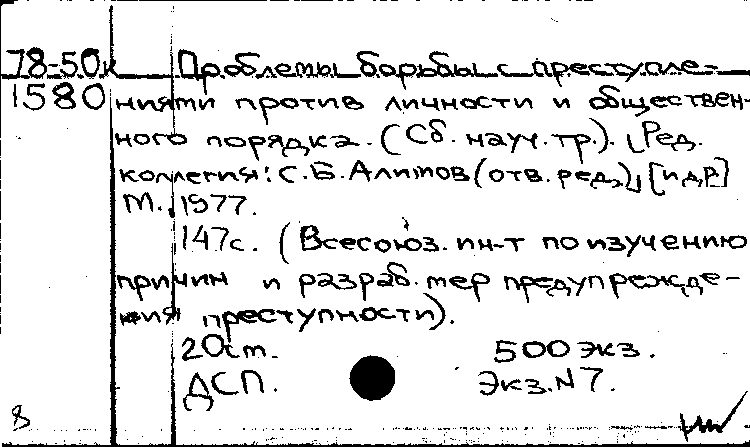 78-50к Проблемы борьбы с преступле-
1580 ниями против личности и обществен-
ного порядка. (Сб. науч. тр.). [Ред.
коллегия: С.Б. Алимов (отв. ред.)], [и др.]
М., 1977.
147с. (Всесоюз. ин-т по изучению
причин и разраб. мер предупрежде-
ния преступности).
20см. 500 экз.
ДСП. Экз. N 7.
8